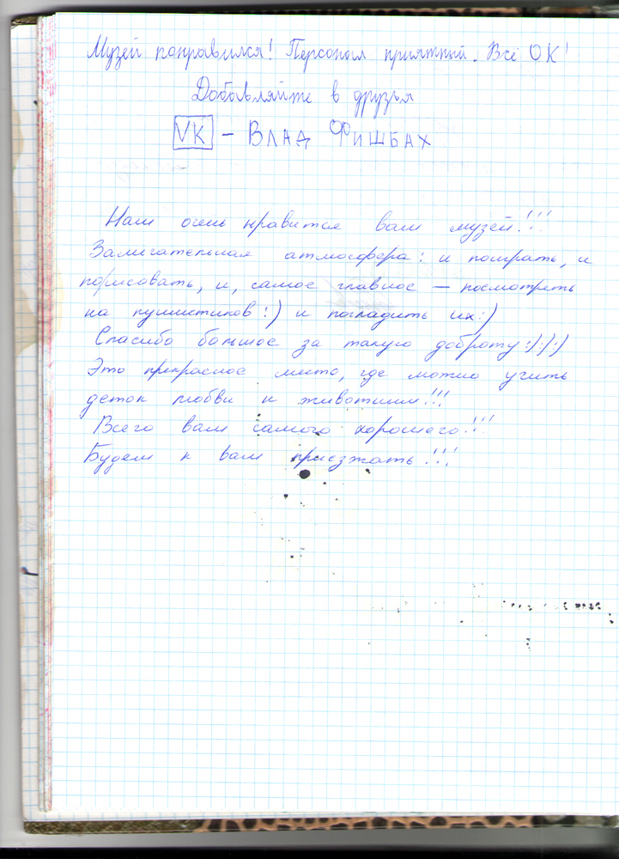 Музей понравился! Персонал приятный. Всё ОК!
Добавляйте в друзья
VK – Влад Фишбах
Нам очень нравится ваш музей!!!
Замечательная атмосфера: и поиграть, и
порисовать, и, самое главное – посмотреть
на пушистиков:) и погладить их:)
Спасибо большое за такую доброту:):):)
Это прекрасное место, где можно учить
деток любви к животным!!!
Всего вам самого хорошего!!!
Будем к вам приезжать!!!